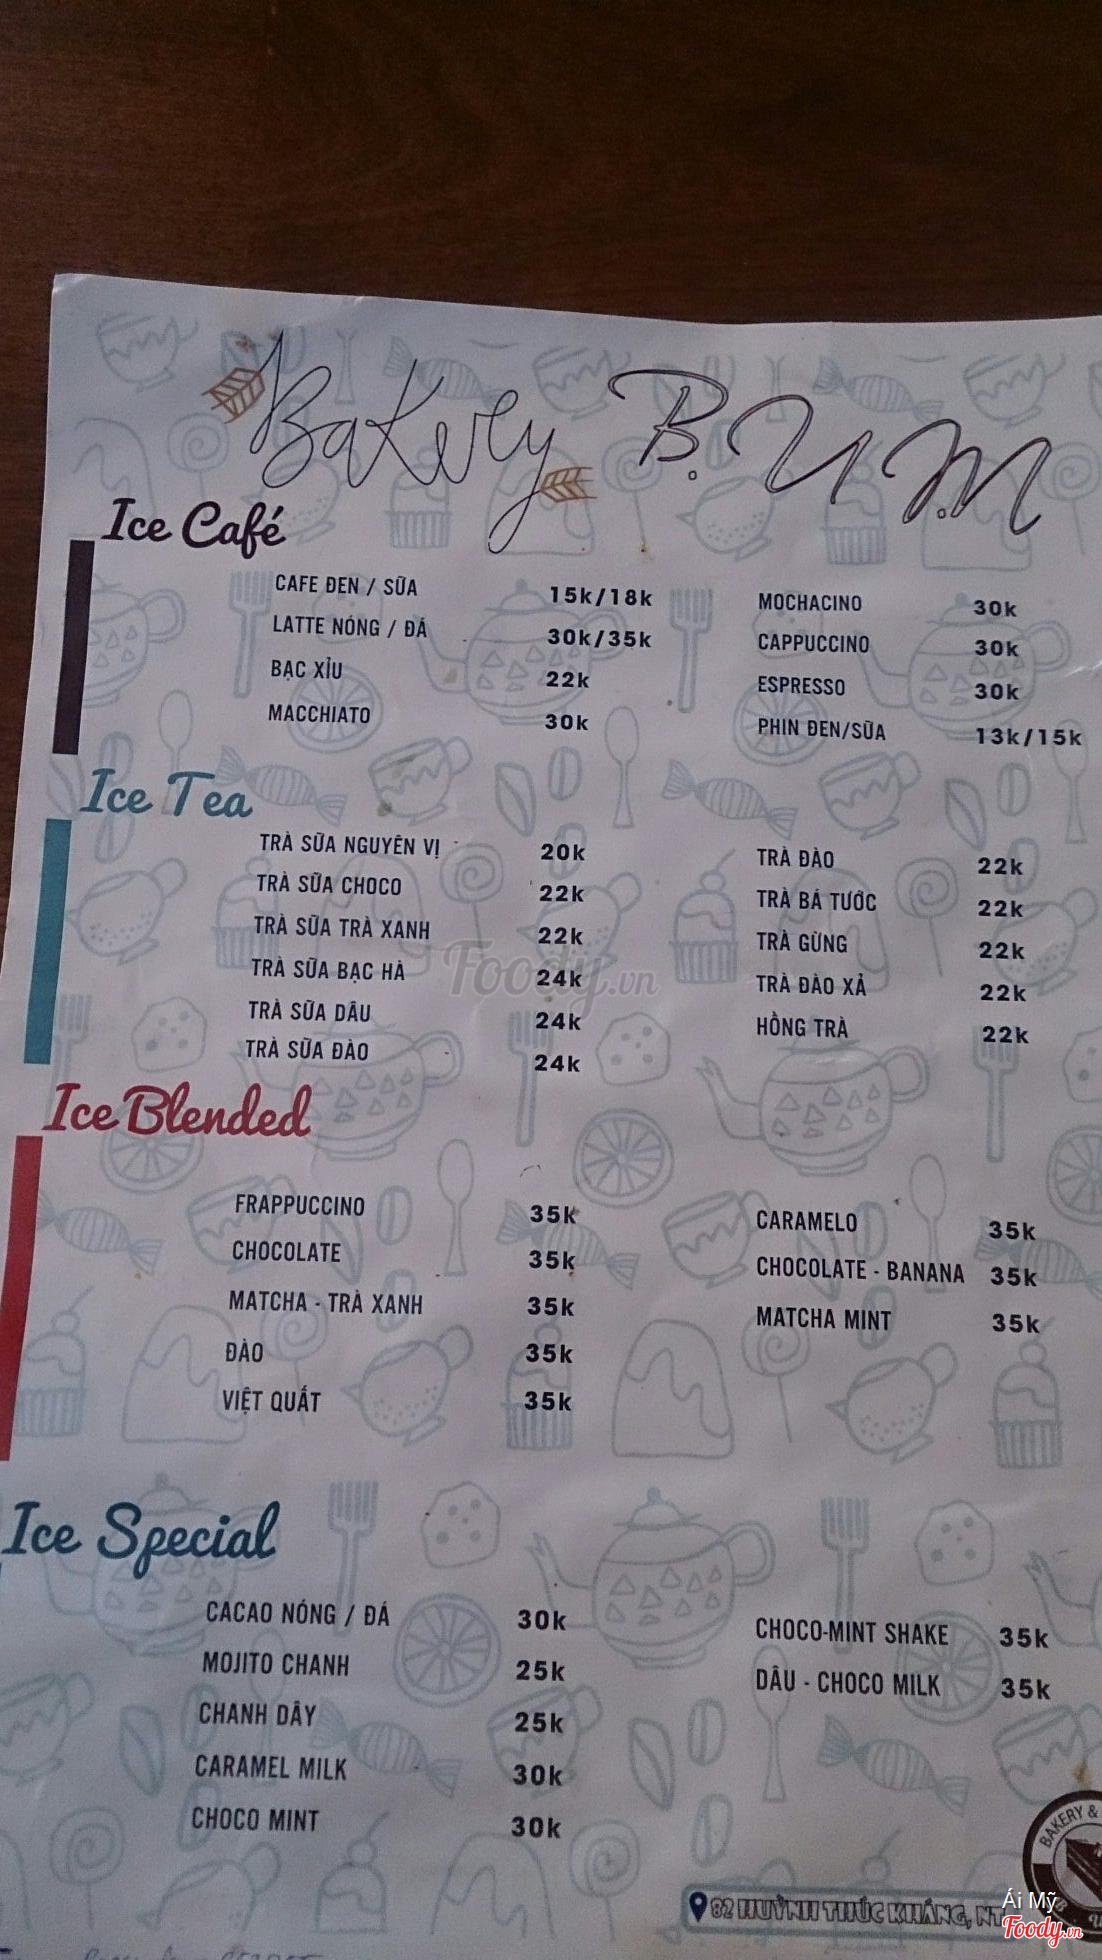 Bakery B.U.M
Ice Café
CAFE ĐEN / SỮA 15k/18k
LATTE NÓNG / ĐÁ 30k/35k
BẠC XỈU 22k
MACCHIATO 30k
MOCHACINO 30k
CAPPUCCINO 30k
ESPRESSO 30k
PHIN ĐEN/SỮA 13k/15k
Ice Tea
TRÀ SỮA NGUYÊN VỊ 20k
TRÀ SỮA CHOCO 22k
TRÀ SỮA TRÀ XANH 22k
TRÀ SỮA BẠC HÀ 24k
TRÀ SỮA DÂU 24k
TRÀ SỮA ĐÀO 24k
TRÀ ĐÀO 22k
TRÀ BÁ TƯỚC 22k
TRÀ GỪNG 22k
TRÀ ĐÀO XẢ 22k
HỒNG TRÀ 22k
Foody.vn
Ice Blended
FRAPPUCCINO 35k
CHOCOLATE 35k
MATCHA - TRÀ XANH 35k
ĐÀO 35k
VIỆT QUẤT 35k
CARAMELO 35k
CHOCOLATE - BANANA 35k
MATCHA MINT 35k
Ice Special
CACAO NÓNG / ĐÁ 30k
MOJITO CHANH 25k
CHANH DÂY 25k
CARAMEL MILK 30k
CHOCO MINT 30k
CHOCO-MINT SHAKE 35k
DÂU - CHOCO MILK 35k
BAKERY &
82 HUỲNH THÚC KHÁNG, NT
Ái Mỹ
Foody.vn